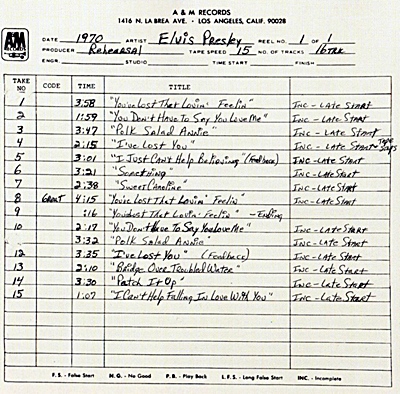 A & M RECORDS
1416 N. LA BREA AVE. • LOS ANGELES, CALIF. 90028
A&M RECORDS
DATE 1970 ARTIST Elvis Presley REEL NO. 1 OF 1
PRODUCER Rehearsal TAPE SPEED 15 NO. OF TRACKS 16TRK
ENGR. STUDIO TIME START FINISH
TAKE NO CODE TIME TITLE
1 3:58 "You've Lost That Lovin' Feelin" INC - LATE START
2 1:59 "You Don't Have To Say You Love Me" INC - Late Start
3 3:47 "Polk Salad Annie" INC - Late Start
4 2:15 "I've Lost You" INC - LATE START - Tape Stops
5 3:01 "I Just Can't Help Believing" (Feedback) INC - LATE START
6 3:21 "Something" INC - Late Start
7 2:38 "Sweet Caroline" INC - Late Start
8 GREAT 4:15 "You've Lost That Lovin' Feelin"
9 :16 "You've Lost That Lovin' Feelin" - Ending
10 2:17 "You Don't Have To Say You Love Me" INC - Late Start
3:32 "Polk Salad Annie" INC - Late Start
12 3:35 "I've Lost You" (Feedback) INC - LATE START
13 2:10 "Bridge Over Troubled Water" INC - Late Start
14 3:30 "Patch It Up" INC - Late Start
15 1:07 "I Can't Help Falling In Love With You" INC - Late Start
F.S. - False Start N.G. - No Good P.B. - Play Back L.F.S. - Long False Start INC. - Incomplete